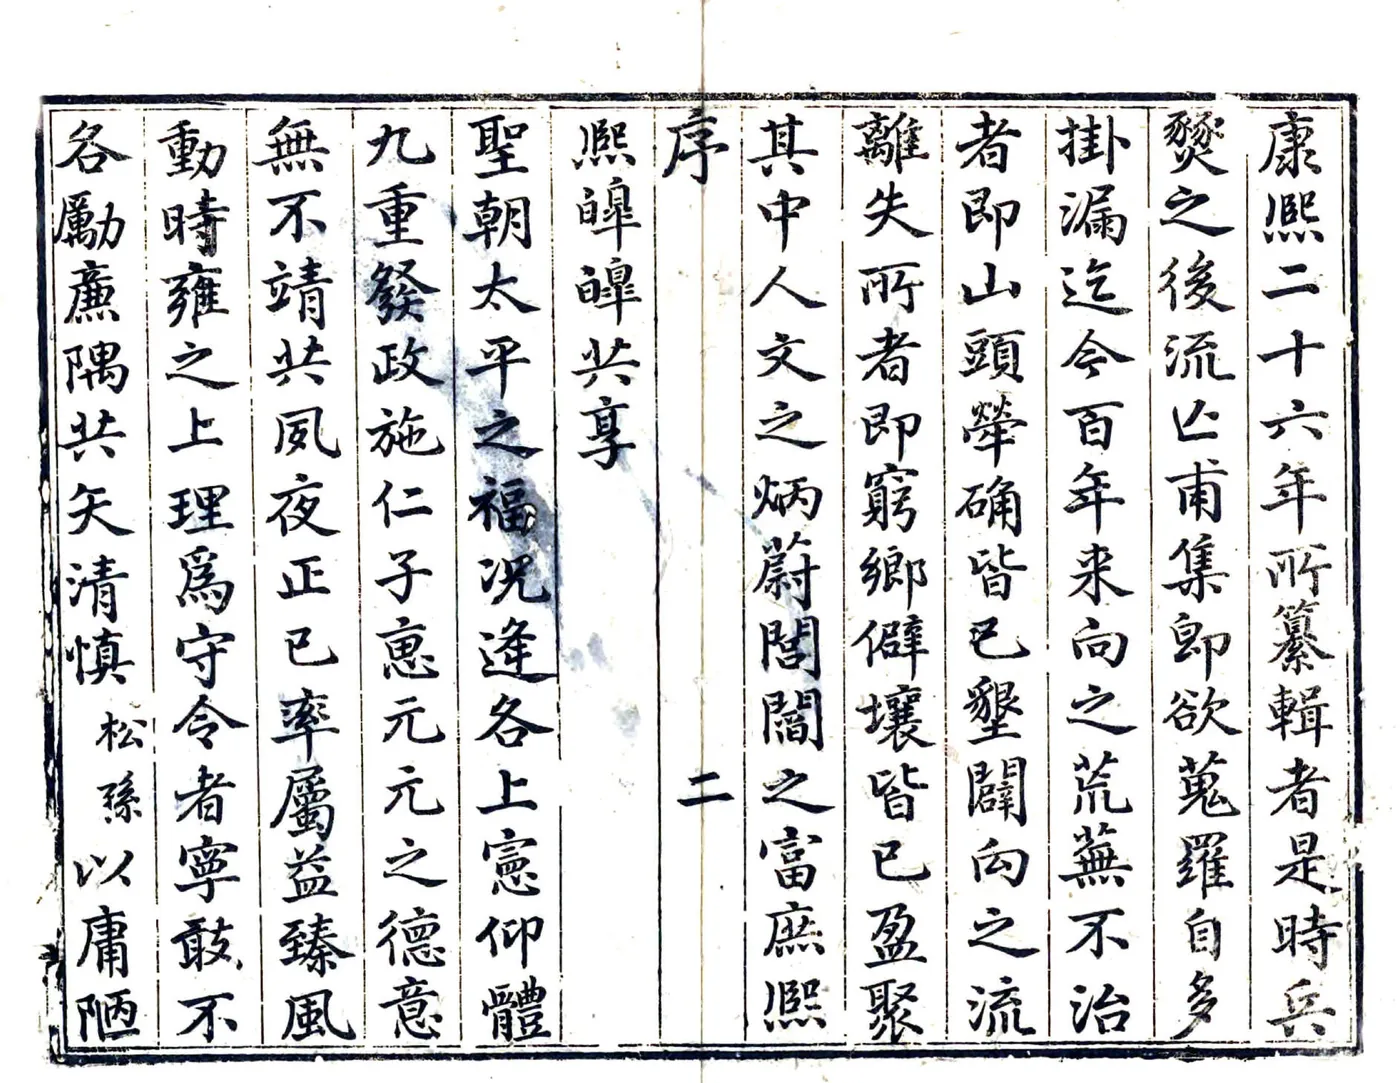 康熙二十六年所纂輯者是時兵
燹之後流亾甫集即欲蒐羅自多
掛漏迄今百年来向之荒蕪不治
者即山頭犖确皆已墾闢向之流
離失所者即窮鄉僻壤皆已盈聚
其中人文之炳蔚閭閻之富庶熙
序 二
熙皥皥共享
聖朝太平之福况逢各上憲仰體
九重發政施仁子惠元元之德意
無不靖共夙夜正已率屬益臻風
動時雍之上理爲守令者寧敢不
各勵亷隅共矢清慎松孫以庸陋